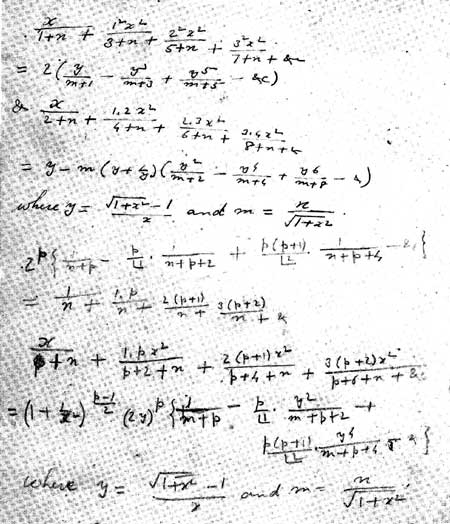 x/(1+n) + 1²x²/(3+n) + 2²x²/(5+n) + 3²x²/(7+n) + &c
= 2(y/(m+1) − y³/(m+3) + y⁵/(m+5) − &c)
& x/(2+n) + 1.2x²/(4+n) + 2.3x²/(6+n) + 3.4x²/(8+n) + &
= y − m(y + 1/y)(y²/(m+2) − y⁴/(m+4) + y⁶/(m+8) − &)
where y = (√(1+x²) − 1)/x and m = n/√(1+x²).
2^p {1/(n+p) − p/⌊1 · 1/(n+p+2) + p(p+1)/⌊2 · 1/(n+p+4) − &c}
= 1/n + 1.p/n + 2(p+1)/n + 3(p+2)/n + &
x/(p+n) + 1.px²/(p+2+n) + 2(p+1)x²/(p+4+n) + 3(p+2)x²/(p+6+n) + &c.
= (1 + 1/x²)^((p−1)/2) (2y)^p {1/(m+p) − p/⌊1 · y²/(m+p+2) +
p(p+1)/⌊2 · y⁴/(m+p+4) − &}
where y = (√(1+x²) − 1)/x and m = n/√(1+x²).